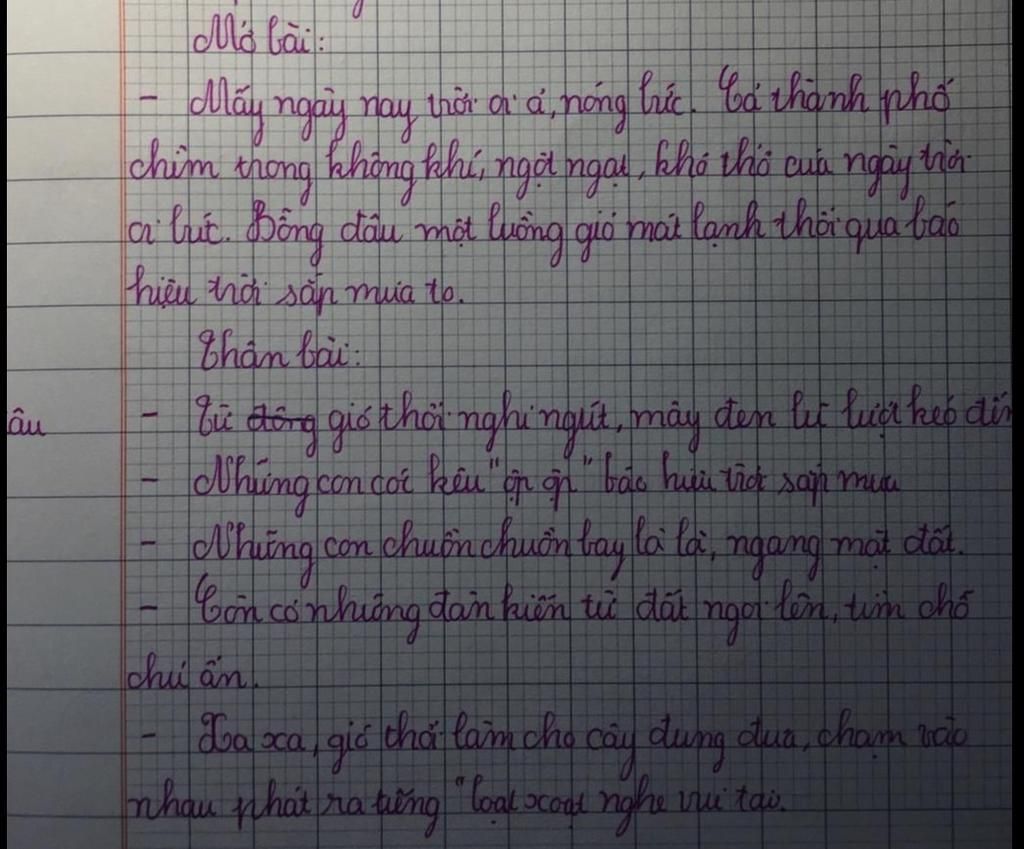 Mở bài:
- Mấy ngày nay trời oi ả, nóng bức. Cả thành phố
chìm trong không khí, ngột ngạt, khó thở của ngày trời
oi bức. Bỗng đâu một luồng gió mát lạnh thổi qua báo
hiệu trời sắp mưa to.
Thân bài:
- Từ đông gió thổi nghi ngút, mây đen lũ lượt kéo đến
âu
- Những con cóc kêu "ộp ộp" báo hiệu trời sắp mưa
- Những con chuồn chuồn bay là là, ngang mặt đất.
- Còn có nhưỡng đàn kiến từ đất ngoi lên, tìm chỗ
chú ẩn.
- Xa xa, gió thổi làm cho cây đung đưa, chạm vào
nhau phát ra tiếng "loạt xoạt nghe vui tai.